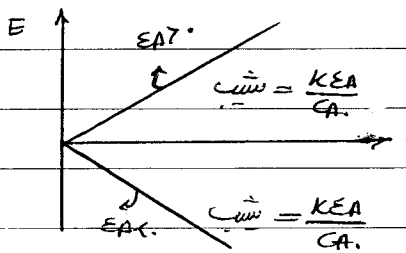 E
εA>۰
شیب = kεA / CA.
εA<.
شیب = kεA / CA.